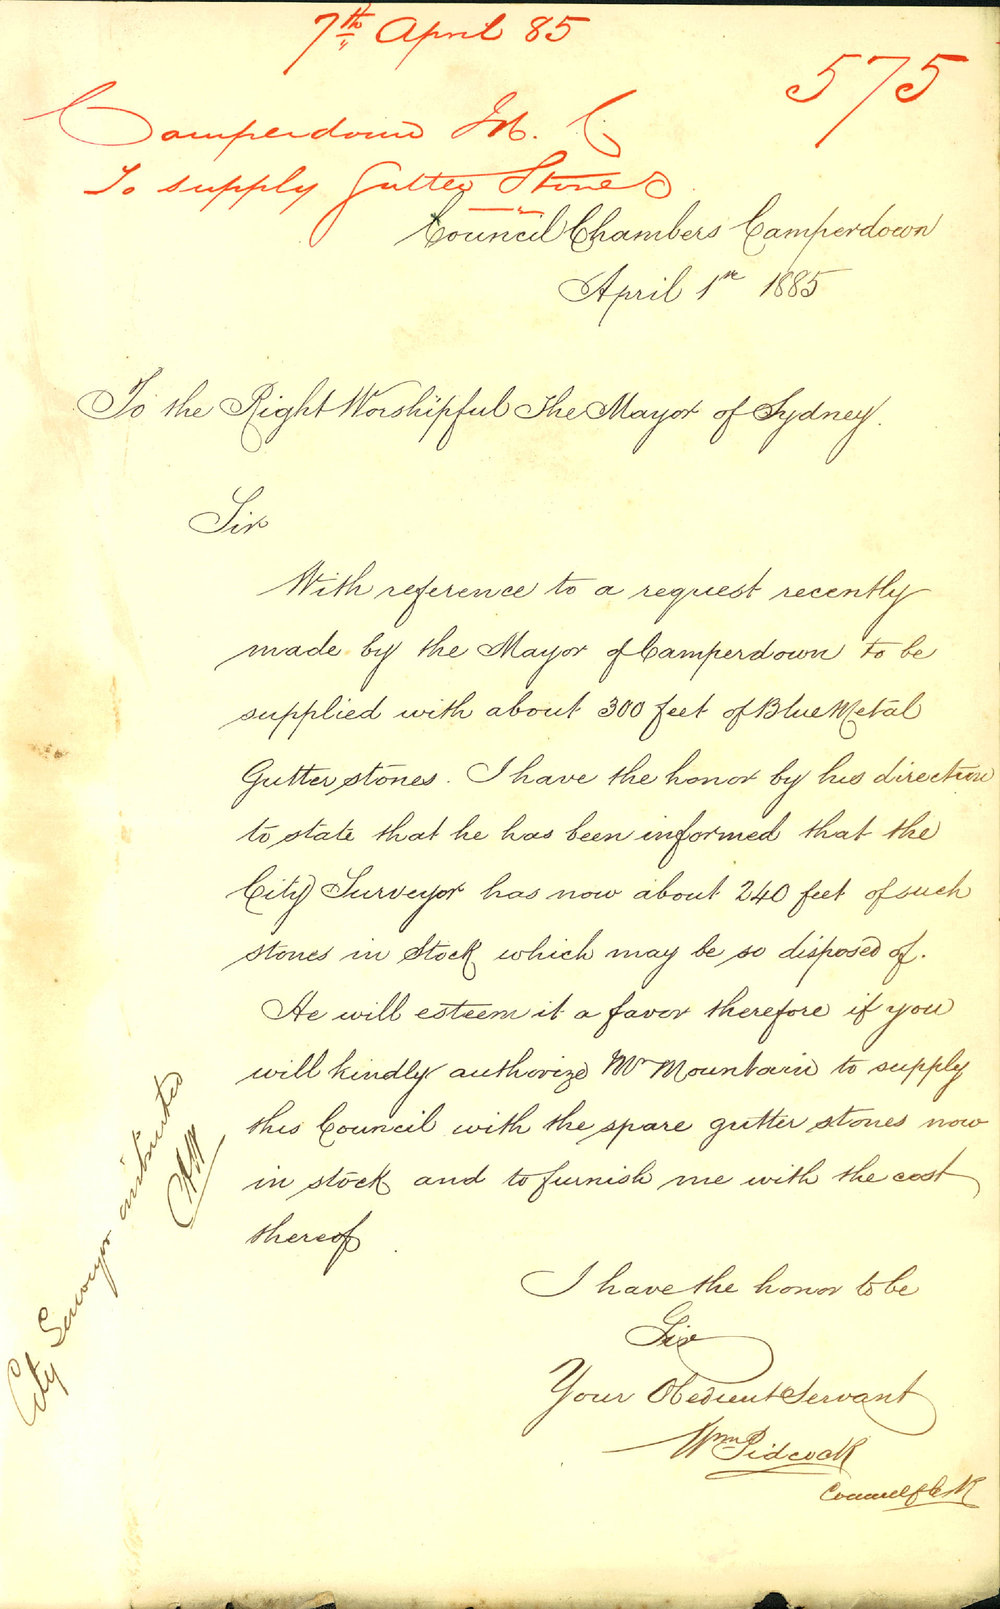 7th April 85
575
Camperdown M. C.
To supply Gutter Stones
Council Chambers Camperdown
April 1st 1885
To the Right Worshipful The Mayor of Sydney.
Sir
With reference to a request recently
made by the Mayor of Camperdown to be
supplied with about 300 feet of Blue Metal
Gutter stones. I have the honor by his direction
to state that he has been informed that the
City Surveyor has now about 240 feet of such
stones in Stock which may be so disposed of.
He will esteem it a favor therefore if you
will kindly authorize Mr Mountain to supply
this Council with the spare gutter stones now
in stock and to furnish me with the cost
thereof
I have the honor to be
Sir
Your Obedient Servant
Wm Pidcock
Council Clk
City Surveyor instructed